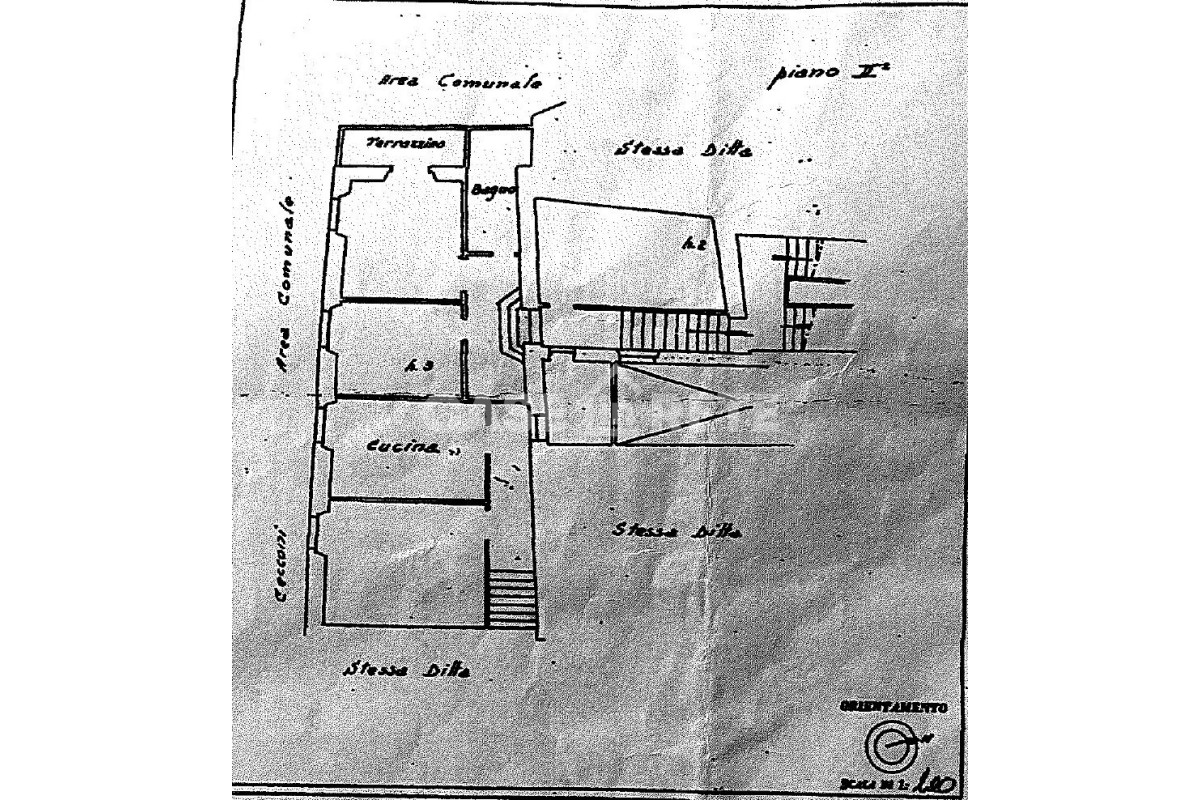 piano II°
Area Comunale
Stessa Ditta
Terrazzino
Bagno
Area Comunale
h.2
h.3
Cucina
Stessa Ditta
Cecconi
Stessa Ditta
ORIENTAMENTO
N
SCALA DI 1: